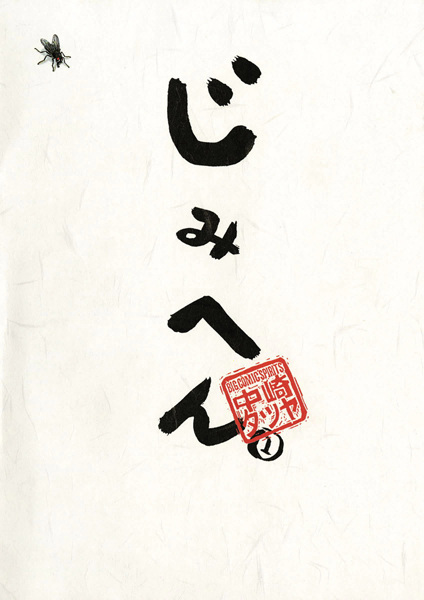 じみへん。
BIG COMIC SPIRITS
中崎
タツヤ
1